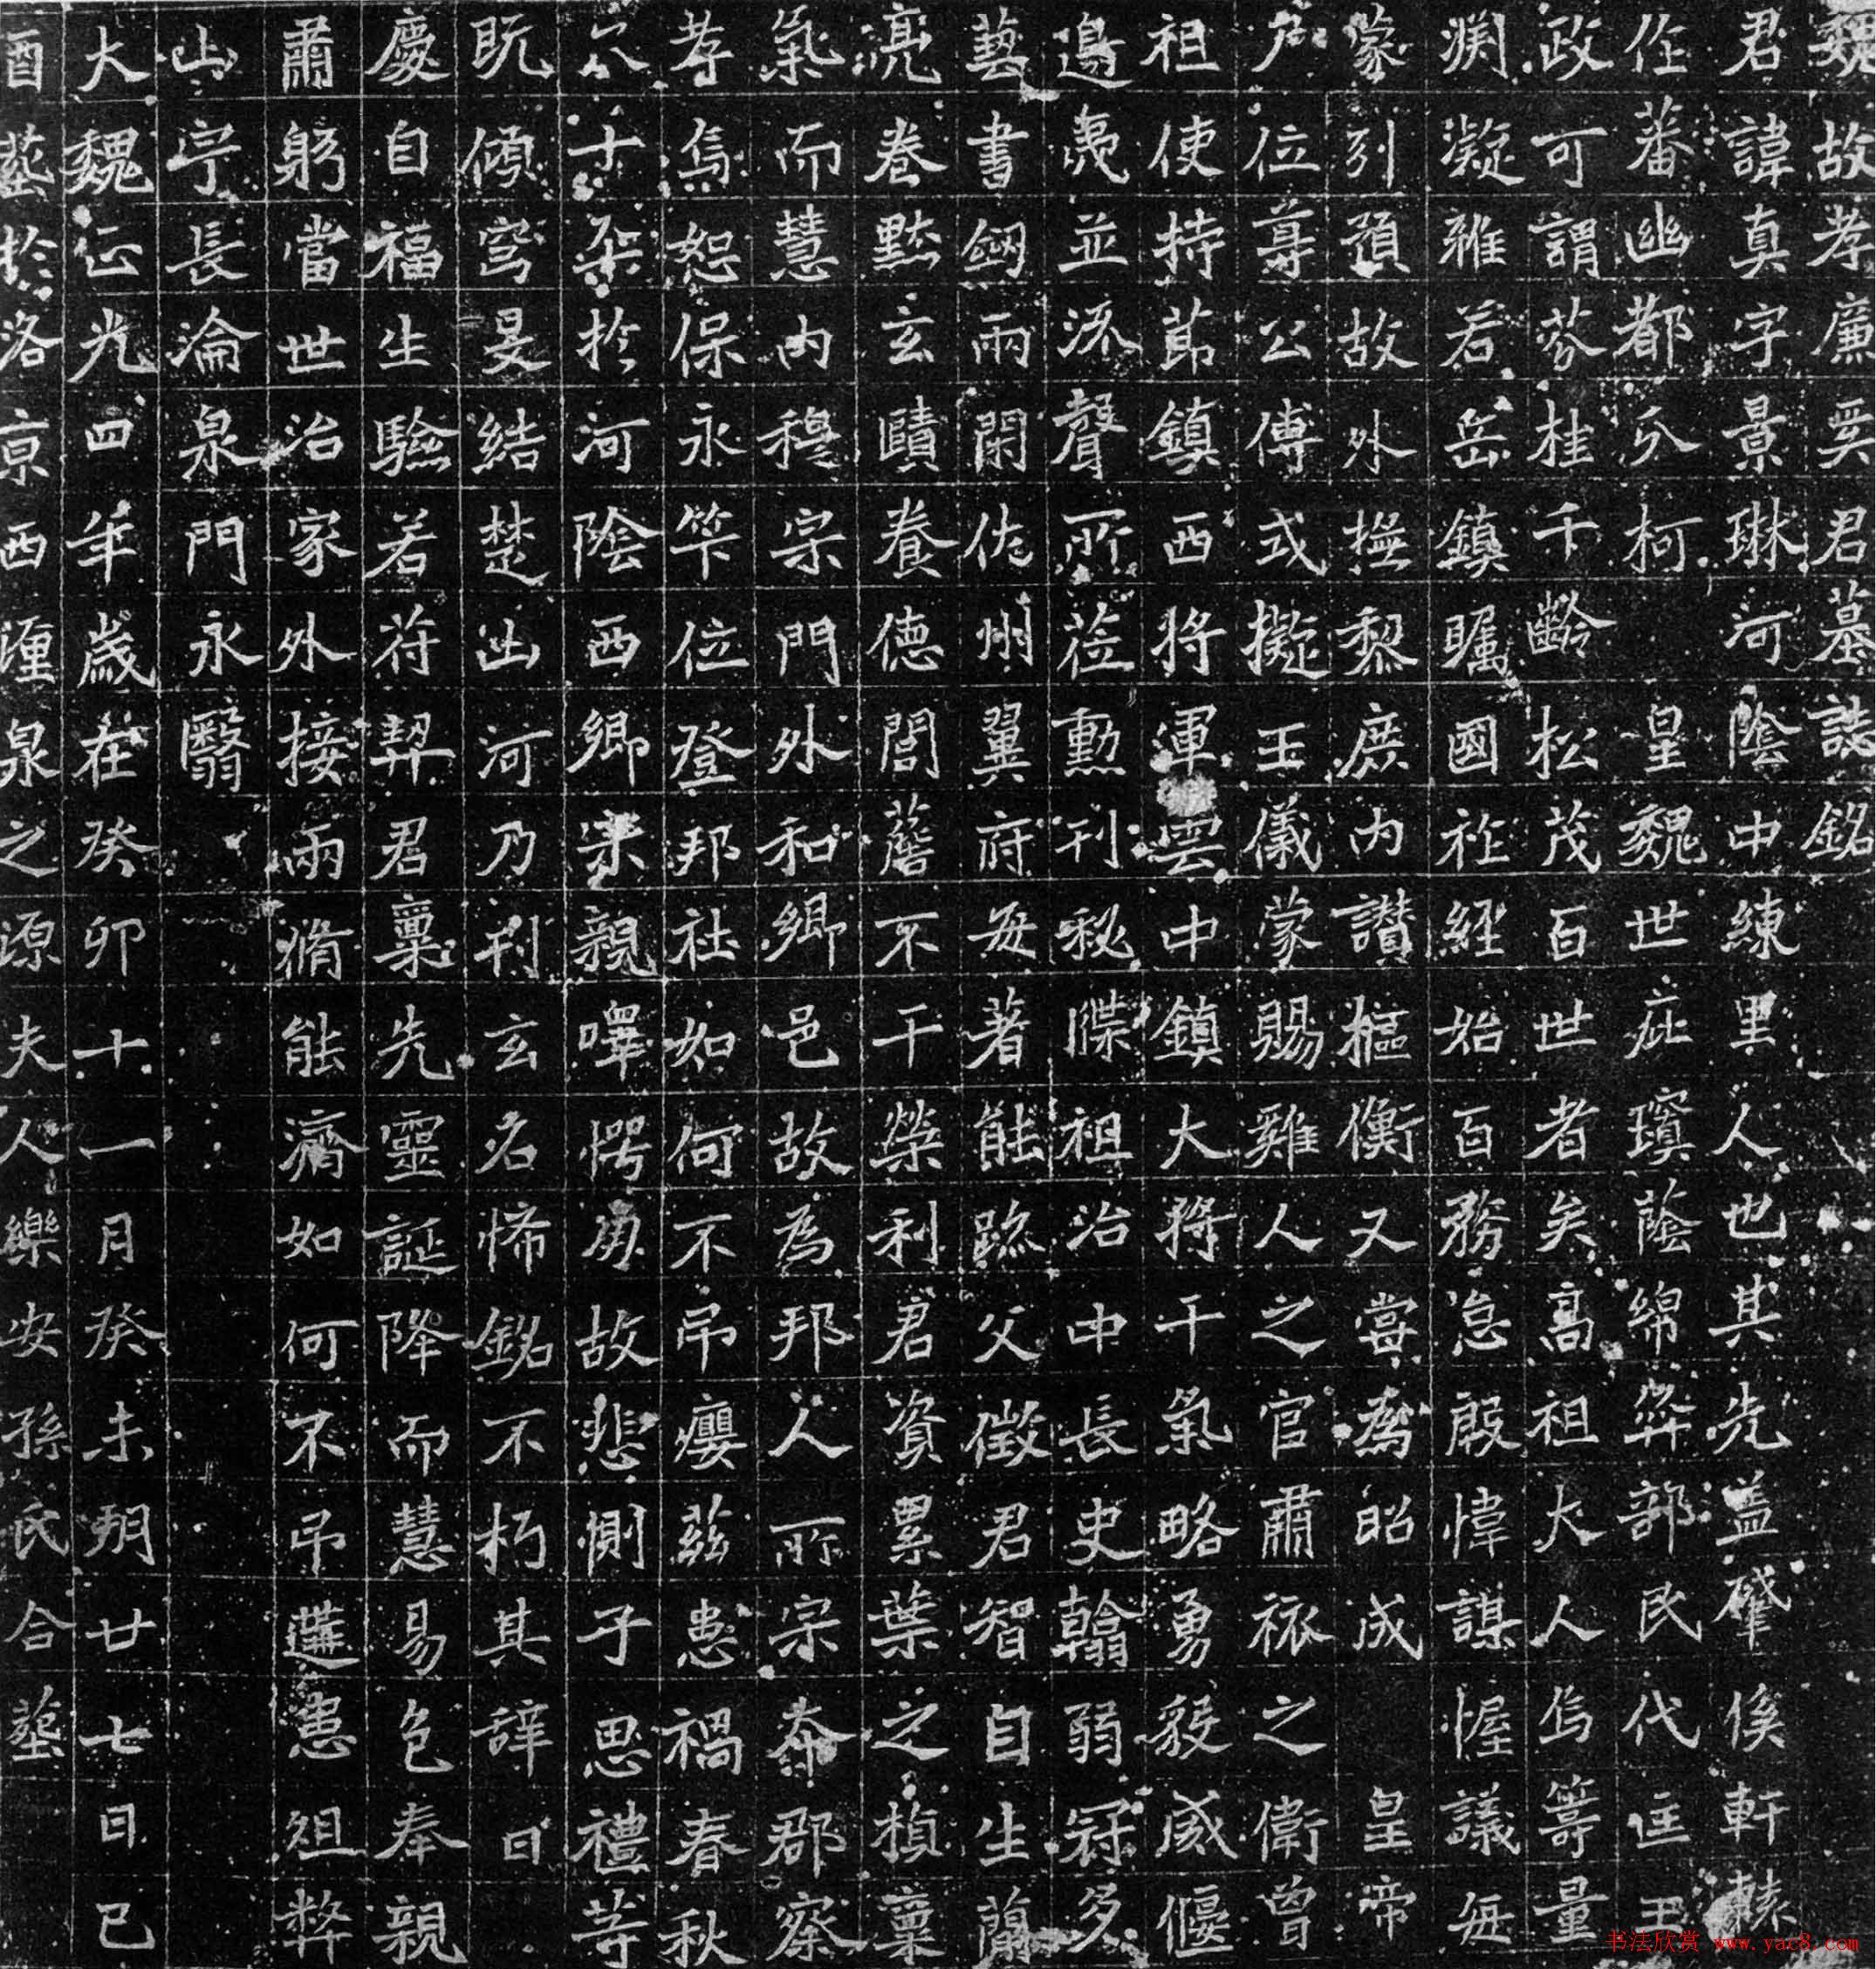 魏故孝廉奚君墓誌銘
君諱真字景琳河陰中練里人也其先蓋肇傒軒轅
作蕃幽都分柯皇魏世庇瓊蔭綿弈部民代匡王
政可謂芬桂千齡松茂百世者矣高祖大人烏籌量
渊凝雅若岳鎮矚國祚經始百務怠殷幃謀幄議每
蒙引預故外撫黎庶内讚樞衡又嘗為昭成皇帝
尸位尊公傅式擬王儀蒙賜雞人之官肅旅之衛曾
祖使持節鎮西將軍雲中鎮大將干氣略勇毅威偃
邊夷並流聲所莅勳刊秘牒祖治中長史翰弱冠多
藝書劔兩閑佐州翼府每著能跡父徵君智自生簡
亮卷默玄賾養德閭蘑不干榮利君資累葉之楨稟
氣而慧内穆宗門外和鄉邑故為邦人所宗泰郡察
孝焉恕保永筭位登邦社如何不吊癭兹患禍春秋
六十柒於河陰西鄉宋親嘽愕朋故悲惻子思禮等
既傾穹旻結楚山河乃刊玄名悕銘不朽其辞曰
慶自福生驗若苻契君稟先靈誕降而慧易色奉親
肅躬當世治家外接兩脩能濟如何不吊遘患徂弊
山宇長淪泉門永翳
大魏正光四年歲在癸卯十一月癸未朔廿七日己
酉塟於洛京西㢆泉之源夫人樂安孫氏合塟
书法欣赏 www.yac8.com